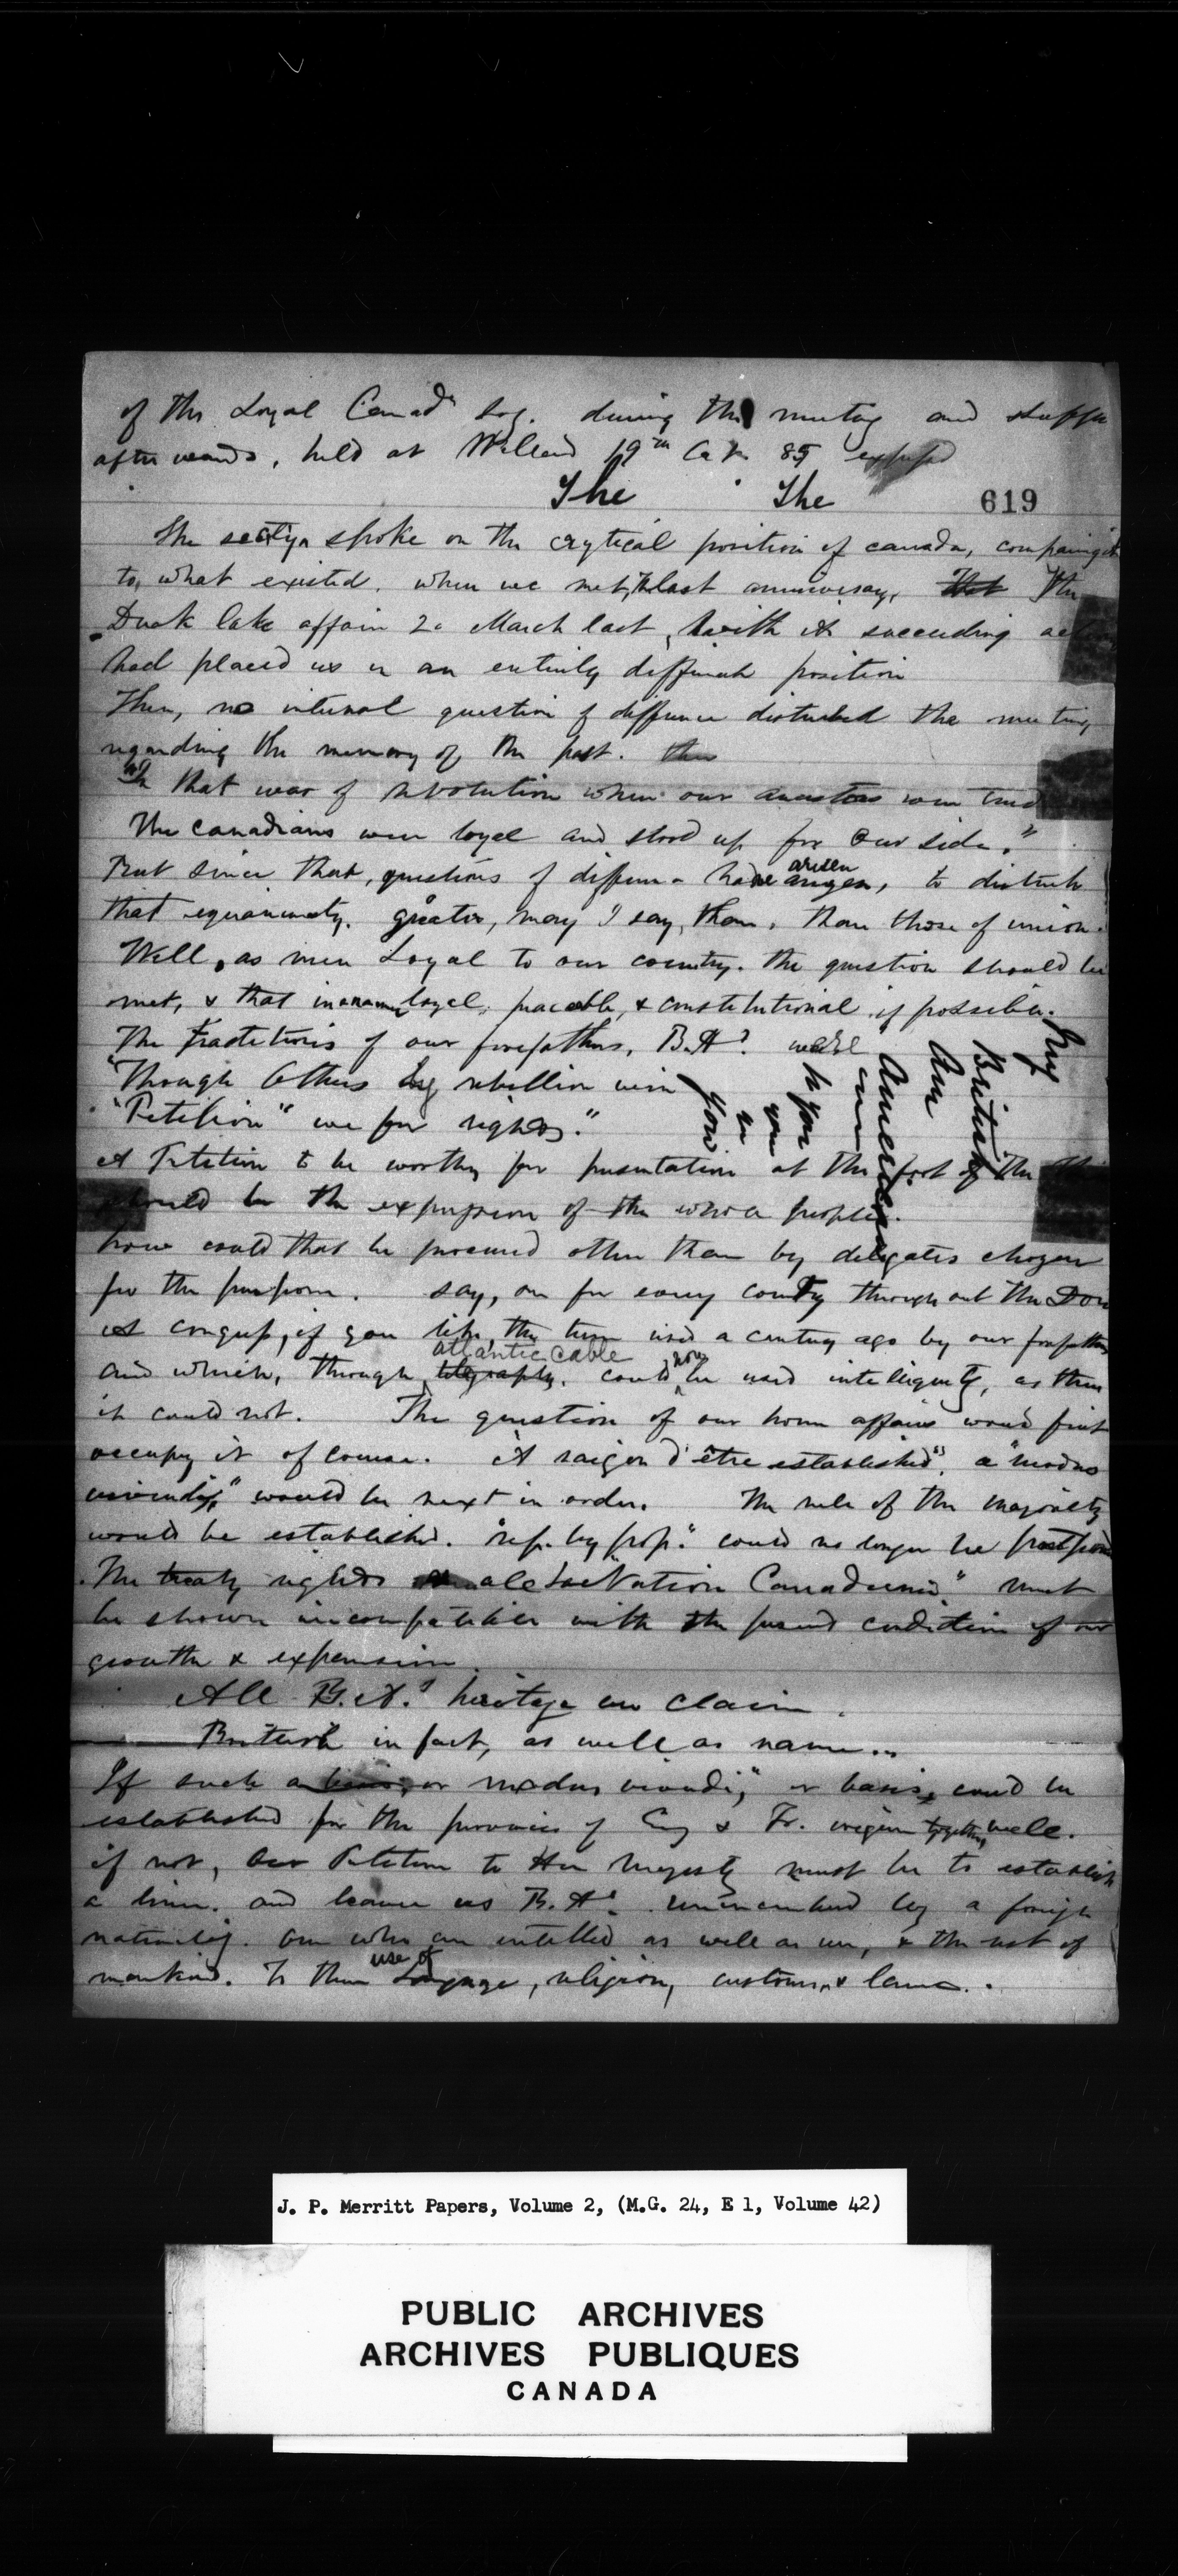 of the Loyal Canadn Soc. during the meeting and supper
afterwards, held at Welland 19th 85
The The
619
The secty spoke on the crytical position of canada, comparing it
to, what existed. when we met, the last anniversay, That The
Duck lake affair 20 March last, with its succeeding
had placed us in an entirely different position
Then, no internal question of difference disturbed the meeting
regarding the memory of the past. then
In that war of revolution when our ancestors were tried
The canadians were loyal and stood up for our side."
But since that, questions of difference have arizen arisen, to disturb
that equanimity. greater, may I say, than, than those of union.
Well, as men Loyal to our country. the question should be
met, & that in a manner loyal, peaceable, & constitutional if possible.
The traditions of our forefathers, B.As. were
"Though Others by rebellion win
"Petition" we for rights."
My
British
Am
American
you
in
your
A Petition to be worthy for presentation at the foot of the
should be the expression of the whole people.
how could that be procured other than by delegates chozen
for the purpose. say, one for every county through out the Dom
A congress, if you like, the term used a century ago by our forefathers
and which, through telegraphy. atlantic cable could now be used intelligently, as then
it could not. The question of our home affairs would first
occupy it of course. A raizon d'être established", a "modus
vivendi," would be next in order. The rule of the majority
would be established. "rep. by pop." could no longer be postponed
The treaty rights "La Nation Canadienne" must
be shown incompatible with the present condition of our
growth & expansion.
All B.A.s heritage we claim.
British in fact, as well as name...
If such a basis, or modus vivendi," or basis, could be
established for the provinces of Eng & Fr. origin together, well.
if not, our Petition to Her Majesty must be to establish
a line. and leave us B.As. unincumbered by a foreign
nationality. one who are intitled as well as we, & the rest of
mankind. To their use of Language, religion, customs, & laws..
J. P. Merritt Papers, Volume 2, (M.G. 24, E 1, Volume 42)
PUBLIC ARCHIVES
ARCHIVES PUBLIQUES
CANADA